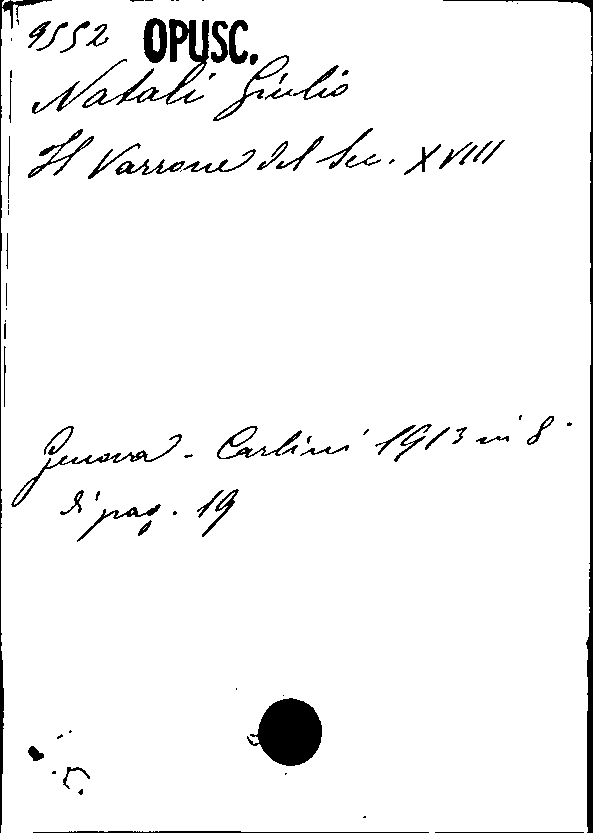 9552 OPUSC.
Natali Giulio
Il Varrone del Sec. XVIII
Genova - Carlini 1913 in 8°
di pag. 19